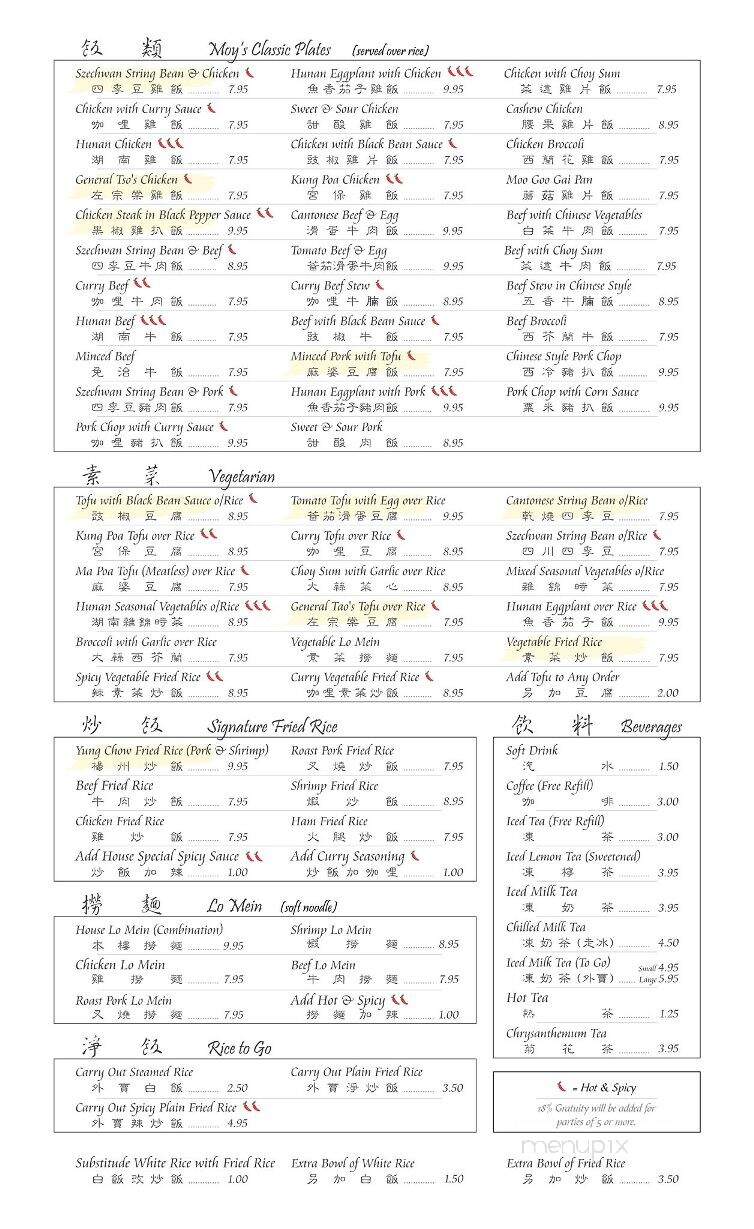 飯 類 Moy's Classic Plates (served over rice)
Szechwan String Bean & Chicken
四季豆雞飯 7.95
Chicken with Curry Sauce
咖喱雞飯 7.95
Hunan Chicken
湖南雞飯 7.95
General Tso's Chicken
左宗棠雞飯 7.95
Chicken Steak in Black Pepper Sauce
黑椒雞扒飯 9.95
Szechwan String Bean & Beef
四季豆牛肉飯 8.95
Curry Beef
咖喱牛肉飯 7.95
Hunan Beef
湖南牛飯 7.95
Minced Beef
免治牛飯 7.95
Szechwan String Bean & Pork
四季豆豬肉飯 7.95
Pork Chop with Curry Sauce
咖喱豬扒飯 9.95
Hunan Eggplant with Chicken
魚香茄子雞飯 9.95
Sweet & Sour Chicken
甜酸雞飯 7.95
Chicken with Black Bean Sauce
豉椒雞片飯 7.95
Kung Poa Chicken
宮保雞飯 7.95
Cantonese Beef & Egg
滑蛋牛肉飯 9.95
Tomato Beef & Egg
蕃茄滑蛋牛肉飯 9.95
Curry Beef Stew
咖喱牛腩飯 8.95
Beef with Black Bean Sauce
豉椒牛飯 7.95
Minced Pork with Tofu
麻婆豆腐飯 7.95
Hunan Eggplant with Pork
魚香茄子豬肉飯 9.95
Sweet & Sour Pork
甜酸肉飯 8.95
Chicken with Choy Sum
菜遠雞片飯 7.95
Cashew Chicken
腰果雞片飯 8.95
Chicken Broccoli
西蘭花雞飯 7.95
Moo Goo Gai Pan
蘑菇雞片飯 7.95
Beef with Chinese Vegetables
白菜牛肉飯 7.95
Beef with Choy Sum
菜遠牛肉飯 7.95
Beef Stew in Chinese Style
五香牛腩飯 8.95
Beef Broccoli
西芥蘭牛飯 7.95
Chinese Style Pork Chop
西冷豬扒飯 9.95
Pork Chop with Corn Sauce
粟米豬扒飯 9.95
素 菜 Vegetarian
Tofu with Black Bean Sauce o/Rice
豉椒豆腐 8.95
Kung Poa Tofu over Rice
宮保豆腐 8.95
Ma Poa Tofu (Meatless) over Rice
麻婆豆腐 7.95
Hunan Seasonal Vegetables o/Rice
湖南雜錦時菜 8.95
Broccoli with Garlic over Rice
大蒜西芥蘭 7.95
Spicy Vegetable Fried Rice
辣素菜炒飯 8.95
Tomato Tofu with Egg over Rice
蕃茄滑蛋豆腐 9.95
Curry Tofu over Rice
咖喱豆腐 8.95
Choy Sum with Garlic over Rice
大蒜菜心 8.95
General Tao's Tofu over Rice
左宗棠豆腐 7.95
Vegetable Lo Mein
素菜撈麵 7.95
Curry Vegetable Fried Rice
咖喱素菜炒飯 8.95
Cantonese String Bean o/Rice
乾燒四季豆 7.95
Szechwan String Bean o/Rice
四川四季豆 7.95
Mixed Seasonal Vegetables o/Rice
雜錦時菜 7.95
Hunan Eggplant over Rice
魚香茄子飯 9.95
Vegetable Fried Rice
素菜炒飯 7.95
Add Tofu to Any Order
另加豆腐 2.00
炒 飯 Signature Fried Rice
Yung Chow Fried Rice (Pork & Shrimp)
楊州炒飯 9.95
Beef Fried Rice
牛肉炒飯 7.95
Chicken Fried Rice
雞炒飯 7.95
Add House Special Spicy Sauce
炒飯加辣 1.00
Roast Pork Fried Rice
叉燒炒飯 7.95
Shrimp Fried Rice
蝦炒飯 8.95
Ham Fried Rice
火腿炒飯 7.95
Add Curry Seasoning
炒飯加咖喱 1.00
撈 麵 Lo Mein (soft noodle)
House Lo Mein (Combination)
本樓撈麵 9.95
Chicken Lo Mein
雞撈麵 7.95
Roast Pork Lo Mein
叉燒撈麵 7.95
Shrimp Lo Mein
蝦撈麵 8.95
Beef Lo Mein
牛肉撈麵 7.95
Add Hot & Spicy
撈麵加辣 1.00
淨 飯 Rice to Go
Carry Out Steamed Rice
外賣白飯 2.50
Carry Out Spicy Plain Fried Rice
外賣辣炒飯 4.95
Carry Out Plain Fried Rice
外賣淨炒飯 3.50
飲 料 Beverages
Soft Drink
汽水 1.50
Coffee (Free Refill)
咖啡 3.00
Iced Tea (Free Refill)
凍茶 3.00
Iced Lemon Tea (Sweetened)
凍檸茶 3.95
Iced Milk Tea
凍奶茶 3.95
Chilled Milk Tea
凍奶茶(走冰) 4.50
Iced Milk Tea (To Go) Small 4.95
凍奶茶(外賣) Large 5.95
Hot Tea
熱茶 1.25
Chrysanthemum Tea
菊花茶 3.95
= Hot & Spicy
18% Gratuity will be added for
parties of 5 or more.
menupix
Substitude White Rice with Fried Rice
白飯改炒飯 1.00
Extra Bowl of White Rice
另加白飯 1.50
Extra Bowl of Fried Rice
另加炒飯 3.50